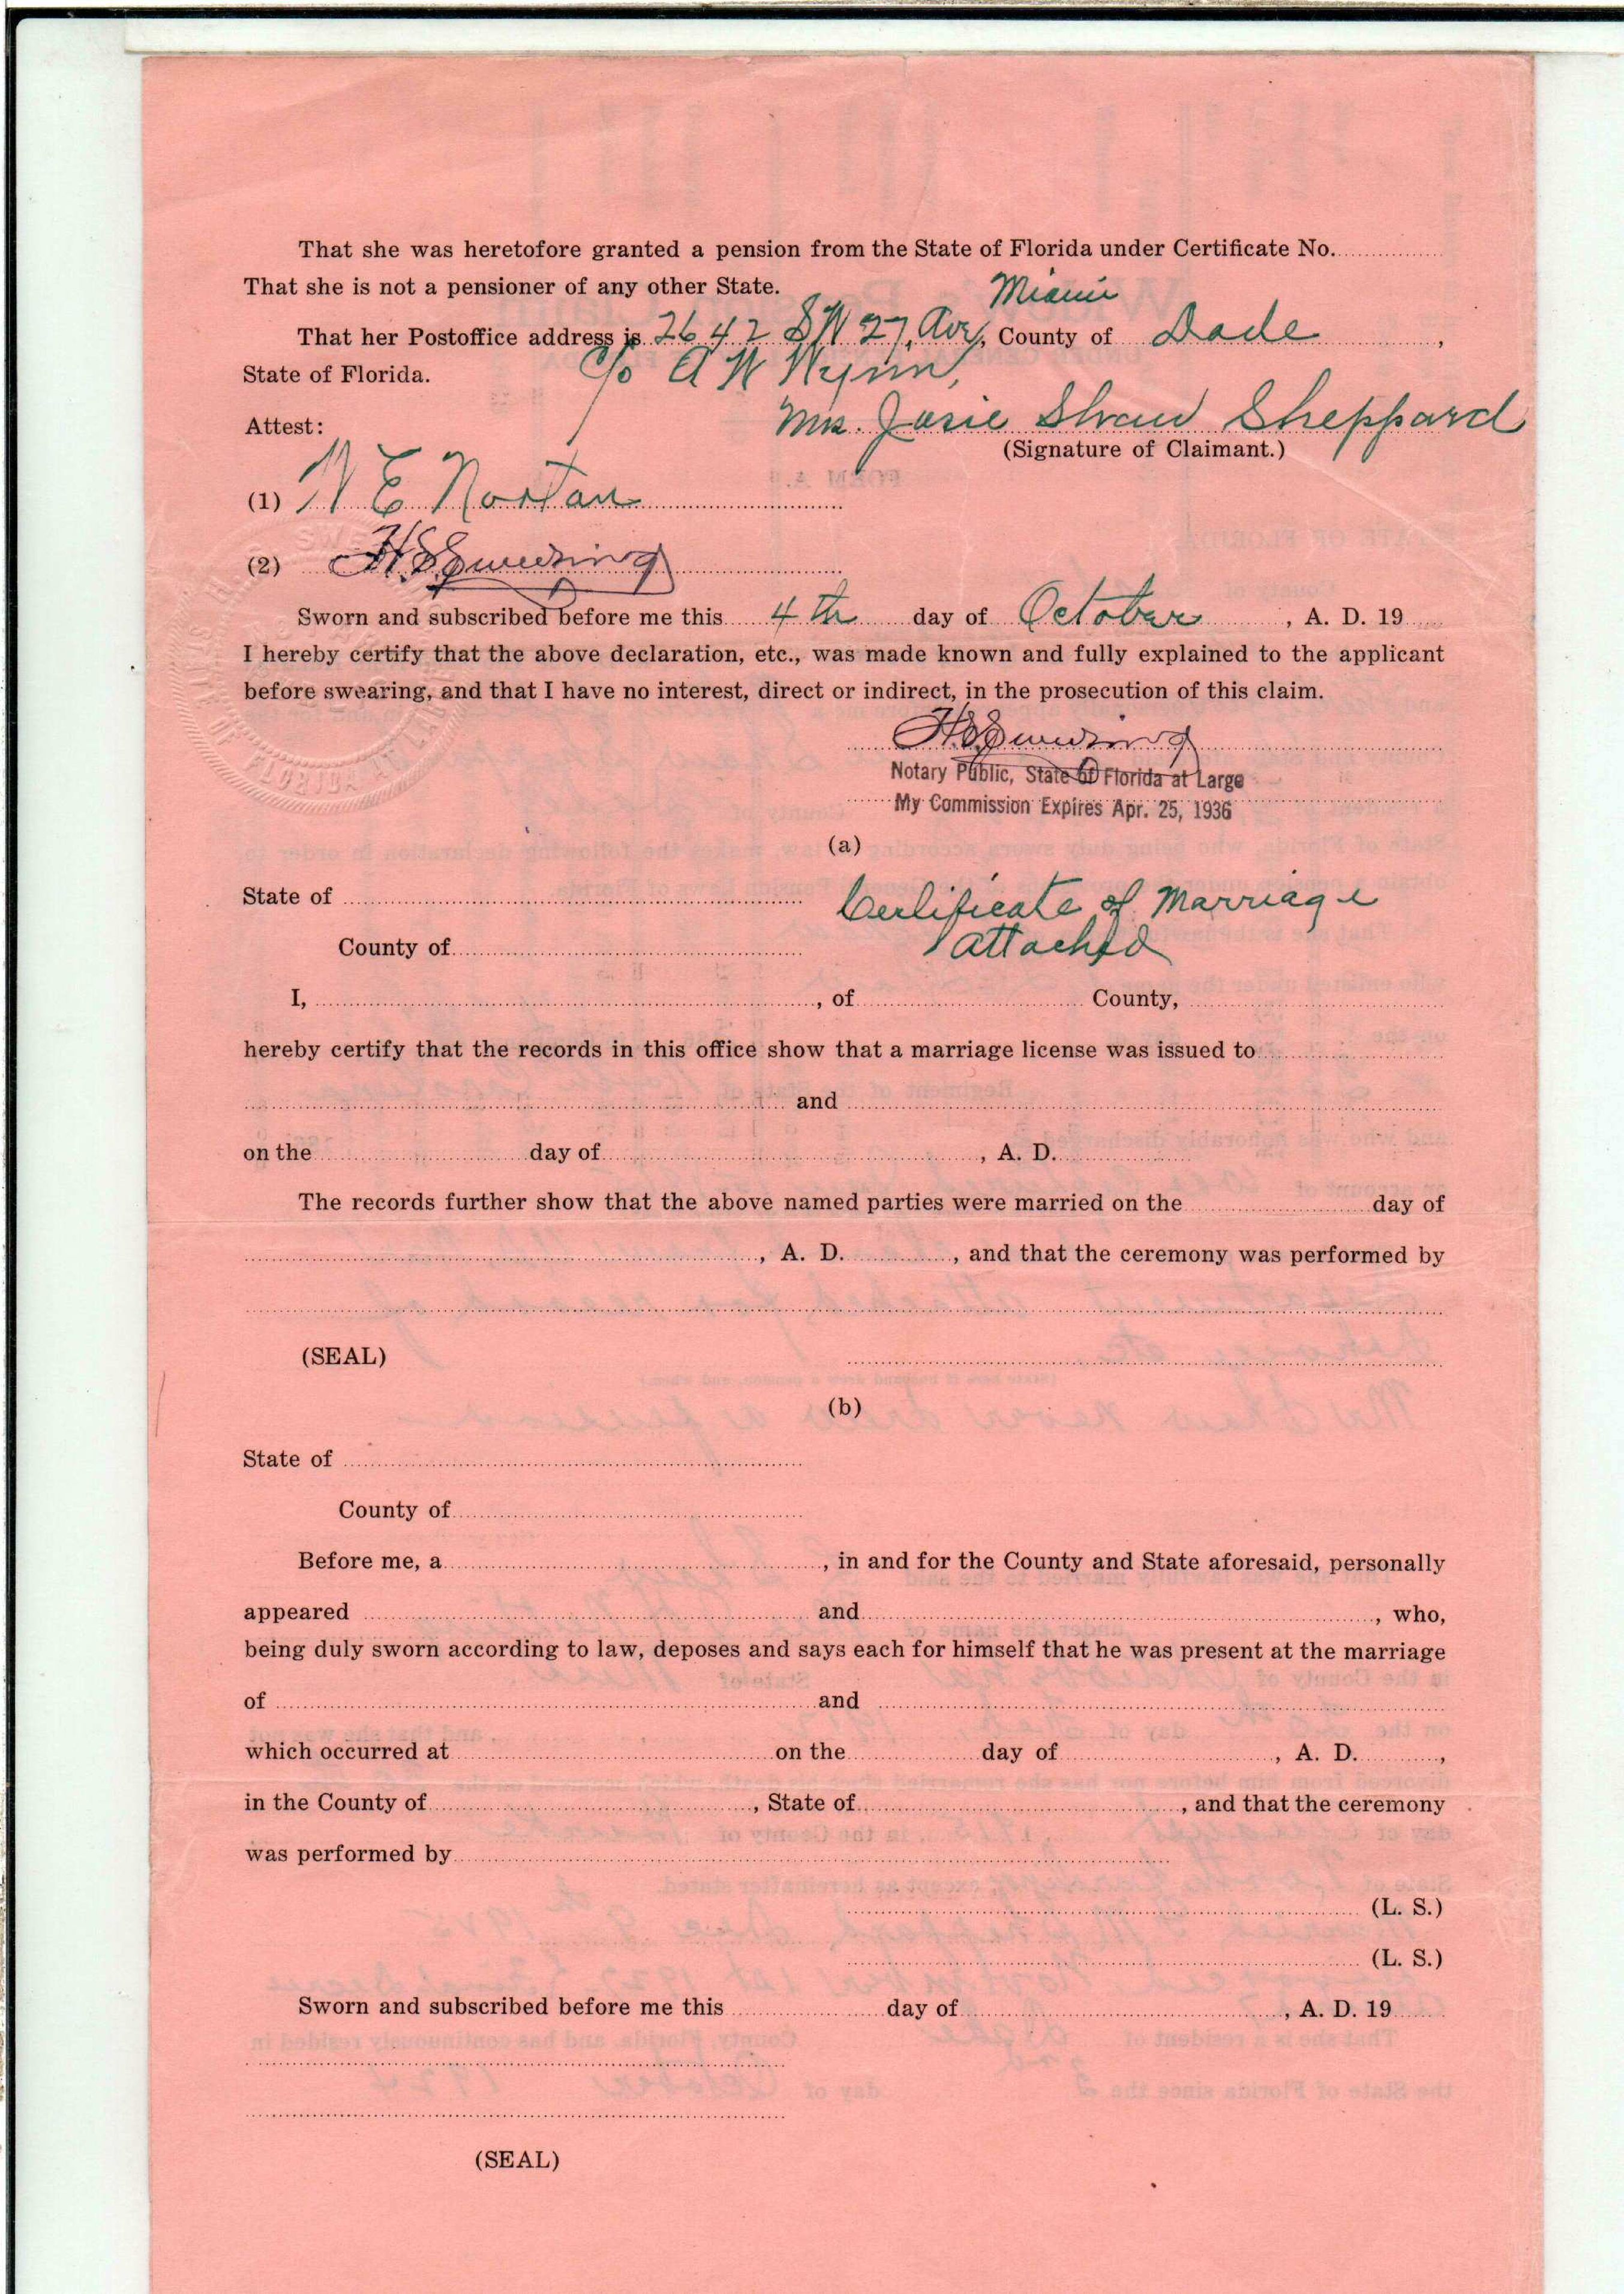 That she was heretofore granted a pension from the State of Florida under Certificate No.
That she is not a pensioner of any other State.
Miami
That her Postoffice address is 2642 SW 27, Ave, County of Dade,
State of Florida. c/o A W Wynn,
Attest: Mrs. Josie Shaw Sheppard
(Signature of Claimant.)
(1) N E Nortan
(2) H S
Sworn and subscribed before me this 4th day of October, A. D. 19
I hereby certify that the above declaration, etc., was made known and fully explained to the applicant
before swearing, and that I have no interest, direct or indirect, in the prosecution of this claim.
H S
Notary Public, State of Florida at Large
My Commission Expires Apr. 25, 1936
(a)
State of
Certificate of Marriage
County of attached
I, , of County,
hereby certify that the records in this office show that a marriage license was issued to
and
on the day of , A. D.
The records further show that the above named parties were married on the day of
, A. D. , and that the ceremony was performed by
(SEAL)
(b)
State of
County of
Before me, a , in and for the County and State aforesaid, personally
appeared and , who,
being duly sworn according to law, deposes and says each for himself that he was present at the marriage
of and
which occurred at on the day of , A. D. ,
in the County of , State of , and that the ceremony
was performed by
(L. S.)
(L. S.)
Sworn and subscribed before me this day of , A. D. 19
(SEAL)